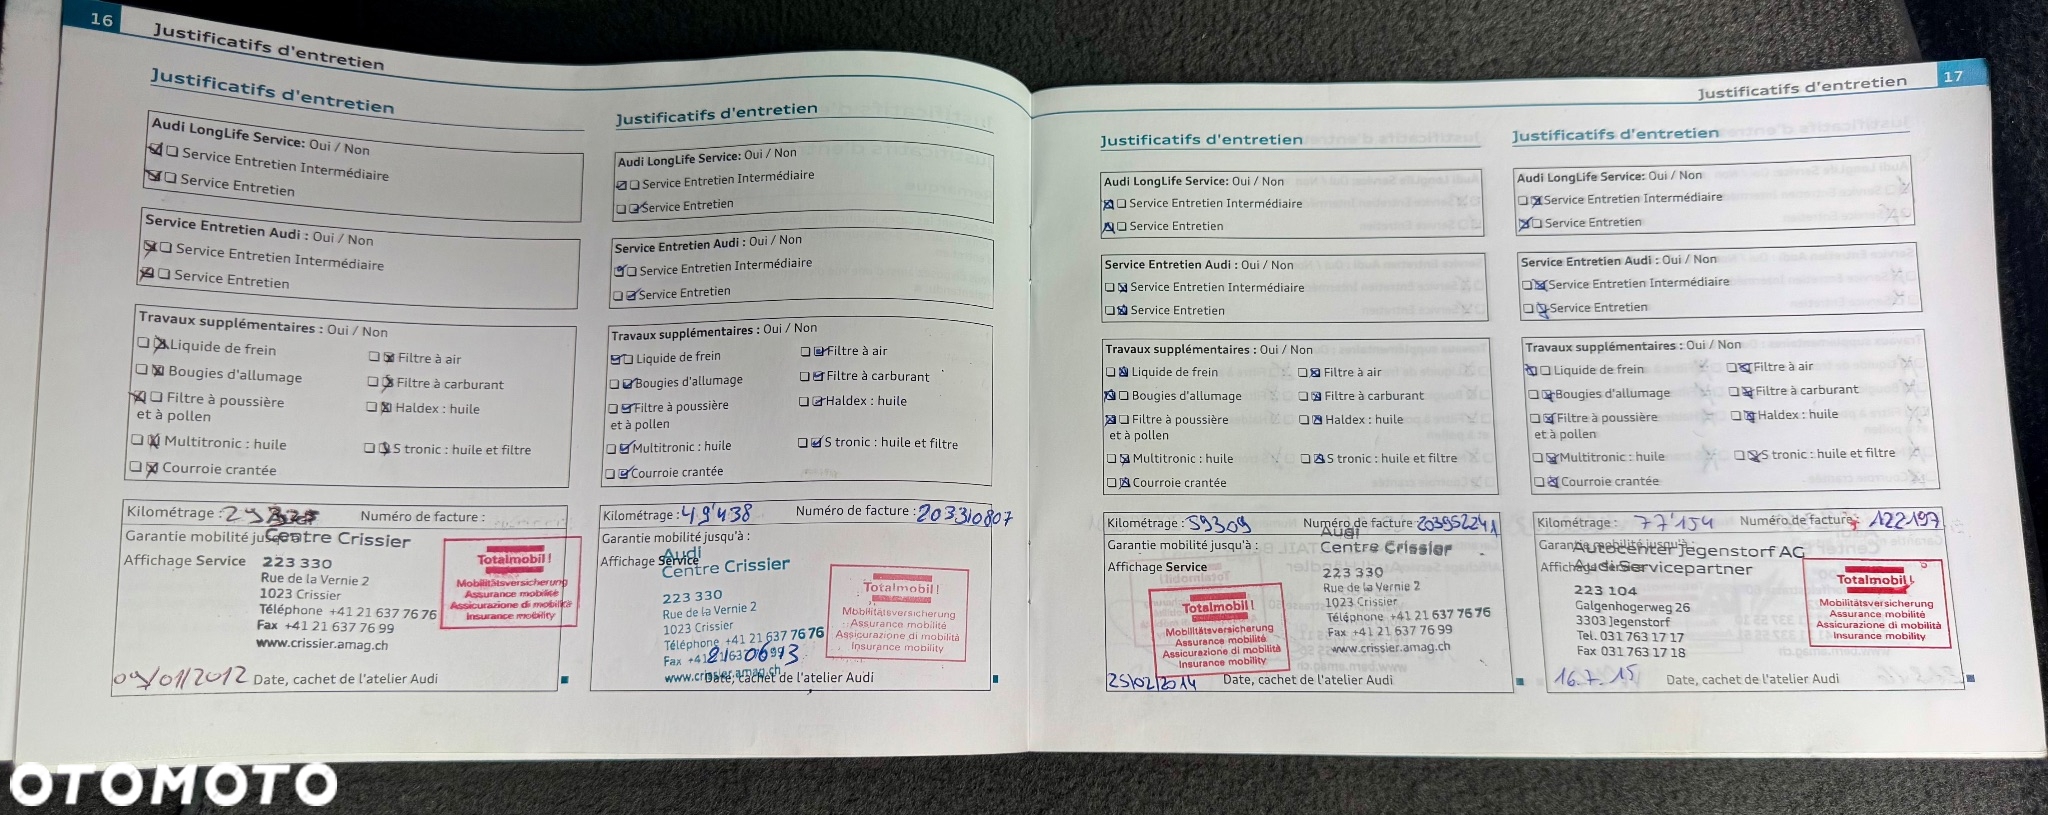 16
Justificatifs d'entretien
Justificatifs d'entretien
Audi LongLife Service: Oui / Non
Service Entretien Intermédiaire
Service Entretien
Service Entretien Audi : Oui / Non
Service Entretien Intermédiaire
Service Entretien
Travaux supplémentaires : Oui / Non
Liquide de frein
Filtre à air
Bougies d'allumage
Filtre à carburant
Filtre à poussière
et à pollen
Haldex : huile
Multitronic : huile
S tronic : huile et filtre
Courroie crantée
Kilométrage :
Numéro de facture :
Garantie mobilité
Centre Crissier
Affichage Service
223 330
Rue de la Vernie 2
1023 Crissier
Téléphone +41 21 637 76 76
Fax +41 21 637 76 99
www.crissier.amag.ch
Totalmobil!
Mobilitätsversicherung
Assurance mobilité
Assicurazione di mobilità
Insurance mobility
09/01/2012 Date, cachet de l'atelier Audi
Justificatifs d'entretien
Audi LongLife Service: Oui / Non
Service Entretien Intermédiaire
Service Entretien
Service Entretien Audi : Oui / Non
Service Entretien Intermédiaire
Service Entretien
Travaux supplémentaires : Oui / Non
Liquide de frein
Filtre à air
Bougies d'allumage
Filtre à carburant
Filtre à poussière
et à pollen
Haldex : huile
Multitronic : huile
S tronic : huile et filtre
Courroie crantée
Kilométrage : 49'438
Numéro de facture : 203310807
Garantie mobilité jusqu'à :
Affichage Service
Audi
Centre Crissier
223 330
Rue de la Vernie 2
1023 Crissier
Téléphone +41 21 637 76 76
www.crissier.amag.ch
Totalmobil!
Mobilitätsversicherung
Assurance mobilité
Assicurazione di mobilità
Insurance mobility
Date, cachet de l'atelier Audi
Justificatifs d'entretien
17
Justificatifs d'entretien
Audi LongLife Service: Oui / Non
Service Entretien Intermédiaire
Service Entretien
Service Entretien Audi : Oui / Non
Service Entretien Intermédiaire
Service Entretien
Travaux supplémentaires : Oui / Non
Liquide de frein
Filtre à air
Bougies d'allumage
Filtre à carburant
Filtre à poussière
et à pollen
Haldex : huile
Multitronic : huile
S tronic : huile et filtre
Courroie crantée
Kilométrage : 59309
Numéro de facture 203952241
Garantie mobilité jusqu'à :
Audi
Centre Crissier
Affichage Service
223 330
Rue de la Vernie 2
1023 Crissier
Téléphone +41 21 637 76 76
Fax +41 21 637 76 99
www.crissier.amag.ch
Totalmobil!
Mobilitätsversicherung
Assurance mobilité
Assicurazione di mobilità
Insurance mobility
25/02/2014 Date, cachet de l'atelier Audi
Justificatifs d'entretien
Audi LongLife Service: Oui / Non
Service Entretien Intermédiaire
Service Entretien
Service Entretien Audi : Oui / Non
Service Entretien Intermédiaire
Service Entretien
Travaux supplémentaires : Oui / Non
Liquide de frein
Filtre à air
Bougies d'allumage
Filtre à carburant
Filtre à poussière
et à pollen
Haldex : huile
Multitronic : huile
S tronic : huile et filtre
Courroie crantée
Kilométrage : 77'154
Numéro de facture : 122197
Autocenter Jegenstorf AG
Audi Servicepartner
223 104
Galgenhogerweg 26
3303 Jegenstorf
Tel. 031 763 17 17
Fax 031 763 17 18
Totalmobil!
Mobilitätsversicherung
Assurance mobilité
Assicurazione di mobilità
Insurance mobility
16.7.15 Date, cachet de l'atelier Audi
OTOMOTO